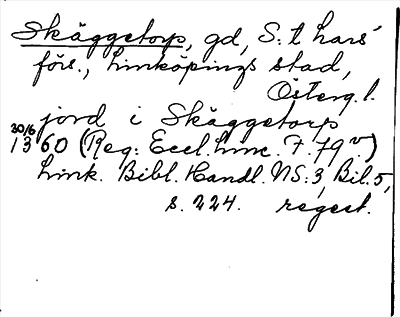 Skäggetorp, gd, S:t Lars'
förs., Linköpings stad,
Österg. l.
jord i Skäggetorp
30/6 1360 (Reg: Eccl. Linc. F. 79 v)
Link. Bibl. Handl. NS:3, Bil. 5,
s. 224. regest.